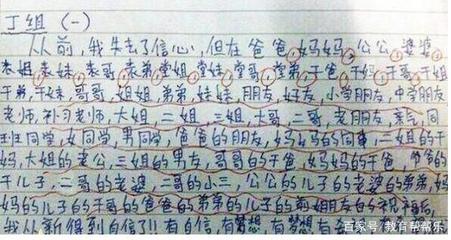 丁组 (一)
从前,我失去了信心,但在爸爸,妈妈,公公,婆婆,
表姐,表妹,表哥,表弟,堂姐,堂妹,堂哥,堂弟,干爸,干妈,干哥,干姐
干弟,干妹,哥哥,姐姐,弟弟,妹妹,朋友,好友,小学朋友,中学朋友
老师,补习老师,大姐,二姐,三姐,大哥,二哥,老朋友,亲戚,同
班同学,女同学,男同学,爸爸的朋友,妈妈的同事,三姐的干
妈,大姐的老公,三姐的男友,哥哥的干爸,妈妈的干爸,爷爷的
干儿子,二哥的老婆,二哥的小三,公公的儿子的老婆的弟弟,妈
妈的儿子的干哥的爸爸的弟弟的儿子的前姐友白的祝福后,
我从新得到自信了!!有自信,有梦想,有梦想有
百家号/教育帮帮乐